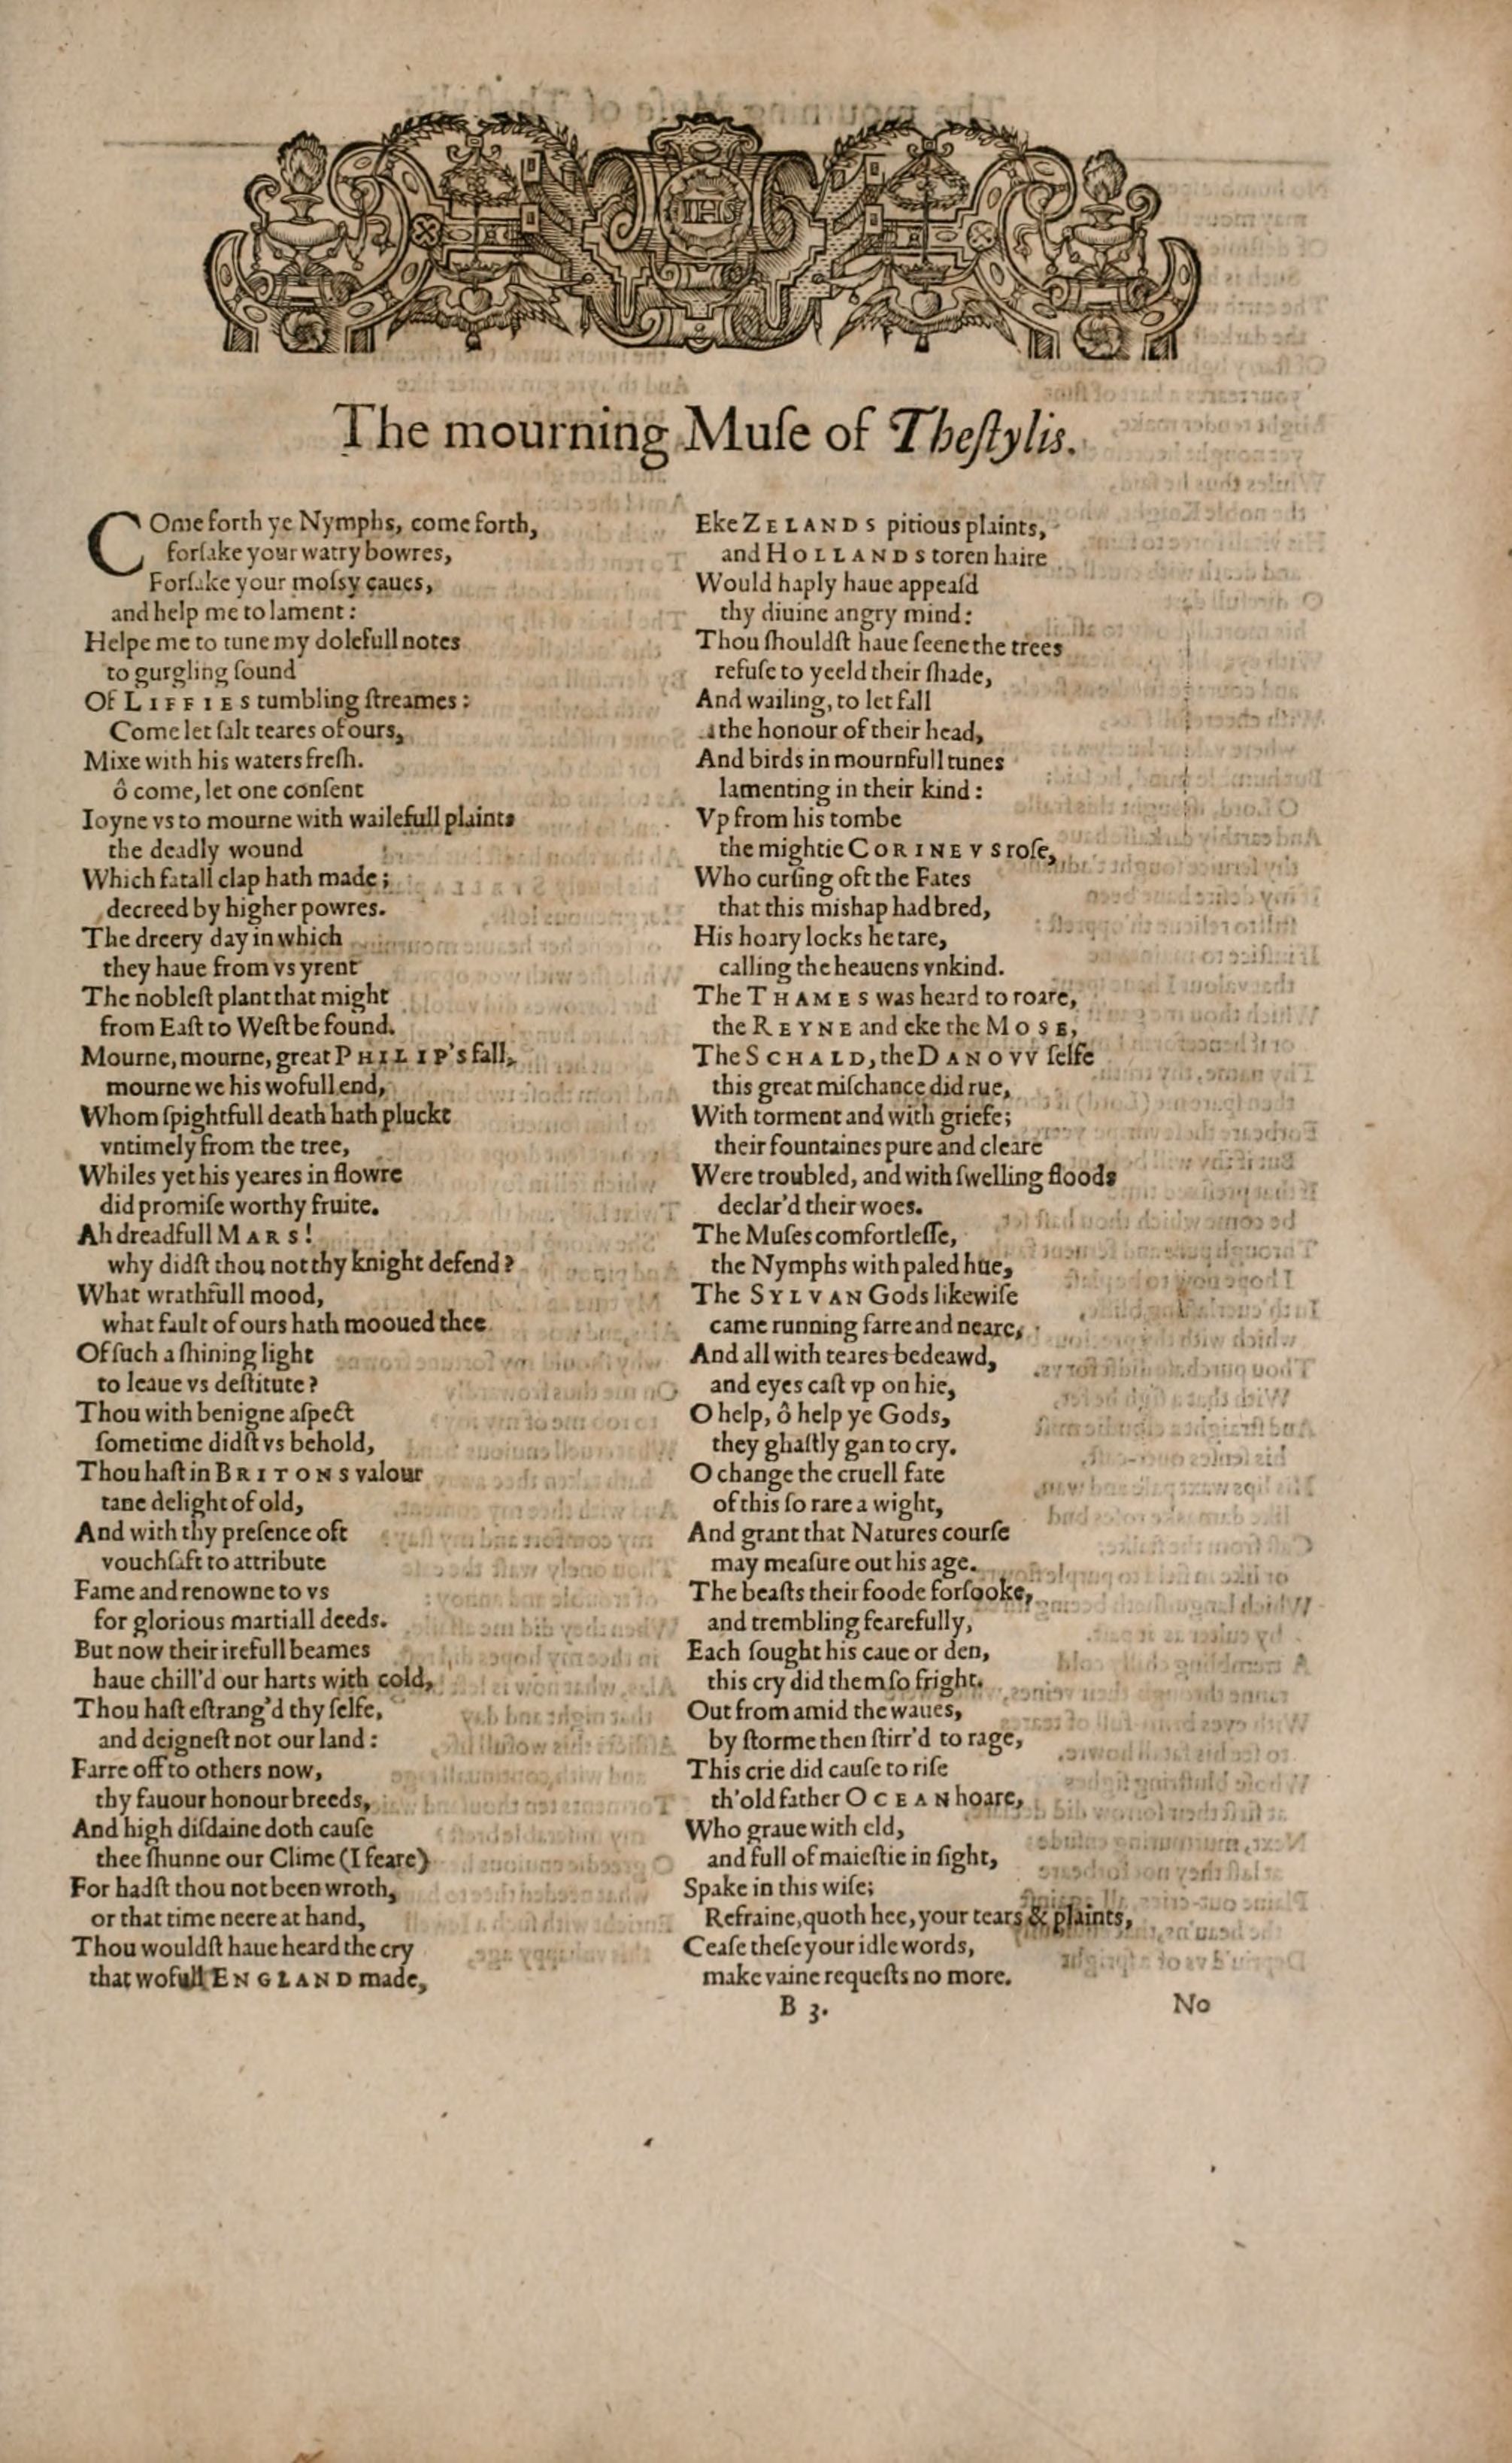 IHS
The mourning Muſe of Theſtylis.
COme forth ye Nymphs, come forth,
forſake your watry bowres,
Forſake your moſsy caues,
and help me to lament:
Helpe me to tune my dolefull notes
to gurgling ſound
Of LIFFIES tumbling ſtreames:
Come let ſalt teares of ours,
Mixe with his waters freſh.
ô come, let one conſent
Ioyne vs to mourne with wailefull plaints
the deadly wound
Which fatall clap hath made;
decreed by higher powres.
The dreery day in which
they haue from vs yrent
The nobleſt plant that might
from Eaſt to Weſt be found.
Mourne, mourne, great PHILIP's fall,
mourne we his wofull end,
Whom ſpightfull death hath pluckt
vntimely from the tree,
Whiles yet his yeares in flowre
did promiſe worthy fruite.
Ah dreadfull MARS!
why didſt thou not thy knight defend?
What wrathfull mood,
what fault of ours hath mooued thee
Of ſuch a ſhining light
to leaue vs deſtitute?
Thou with benigne aſpect
ſometime didſt vs behold,
Thou haſt in BRITONS valour
tane delight of old,
And with thy preſence oft
vouchſaft to attribute
Fame and renowne to vs
for glorious martiall deeds.
But now their irefull beames
haue chill'd our harts with cold,
Thou haſt eſtrang'd thy ſelfe,
and deigneſt not our land:
Farre off to others now,
thy fauour honour breeds,
And high diſdaine doth cauſe
thee ſhunne our Clime (I feare)
For hadſt thou not been wroth,
or that time neere at hand,
Thou wouldſt haue heard the cry
that wofull ENGLAND made,
Eke ZELANDS pitious plaints,
and HOLLANDS toren haire
Would haply haue appeaſd
thy diuine angry mind:
Thou ſhouldſt haue ſeene the trees
refuſe to yeeld their ſhade,
And wailing, to let fall
the honour of their head,
And birds in mournfull tunes
lamenting in their kind:
Vp from his tombe
the mightie CORINEVS roſe,
Who curſing oft the Fates
that this mishap had bred,
His hoary locks he tare,
calling the heauens vnkind.
The THAMES was heard to roare,
the REYNE and eke the MOSE,
The SCHALD, the DANOVV ſelfe
this great miſchance did rue,
With torment and with griefe;
their fountaines pure and cleare
Were troubled, and with ſwelling floods
declar'd their woes.
The Muſes comfortleſſe,
the Nymphs with paled hue,
The SYLVAN Gods likewiſe
came running farre and neare,
And all with teares bedeawd,
and eyes caſt vp on hie,
O help, ô help ye Gods,
they ghaſtly gan to cry.
O change the cruell fate
of this ſo rare a wight,
And grant that Natures courſe
may meaſure out his age.
The beaſts their foode forſooke,
and trembling fearefully,
Each ſought his caue or den,
this cry did them ſo fright.
Out from amid the waues,
by ſtorme then ſtirr'd to rage,
This crie did cauſe to riſe
th'old father OCEAN hoare,
Who graue with eld,
and full of maieſtie in ſight,
Spake in this wiſe;
Refraine, quoth hee, your tears & plaints,
Ceaſe theſe your idle words,
make vaine requeſts no more.
B 3.
No